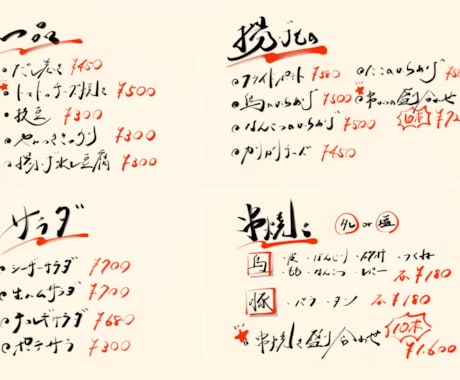 一品
・だし巻き ¥450
・トマトのチーズ焼き ¥500
・枝豆 ¥300
・やみつききゅうり ¥300
・揚げ出し豆腐 ¥500
揚げもの
・フライドポテト ¥380
・鳥のからあげ ¥500
・なんこつのからあげ ¥500
・カリカリチーズ ¥450
・たこのからあげ
・串かつの盛り合わせ
サラダ
・シーザーサラダ ¥700
・生ハムサラダ ¥700
・チョレギサラダ ¥680
・ポテサラ ¥300
串焼き タレ or 塩
鳥 ・皮 ・ぼんじり ・つくね
・もも ・なんこつ ・レバー 各¥180
豚 ・バラ ・タン 各¥180
・串焼き盛り合わせ 10本 ¥1,600